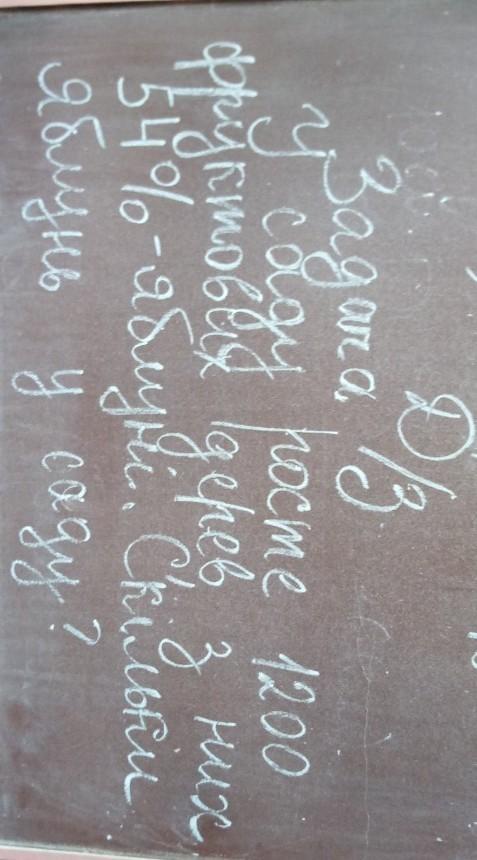 Д/З
Задача
У саду росте 1200
фруктових дерев з них
54% - яблуні. Скільки
яблунь у саду?